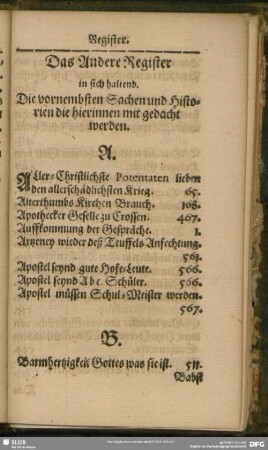 Register.
Das Andere Register
in sich haltend.
Die vornembsten Sachen und Histo-
rien die hierinnen mit gedacht
werden.
A.
Aller-Christlichste Potentaten lieben
den allerschädlichsten Krieg. 65.
Alterthumbs Kirchen Brauch. 168.
Apothecker Geselle zu Crossen. 467.
Auffkommung der Gespräche. 1.
Artzeney wieder deß Teuffels Anfechtung.
561.
Apostel seynd gute Hofe-Leute. 566.
Apostel seynd A b c. Schüler. 566.
Apostel müssen Schul-Meister werden.
567.
B.
Barmhertzigkeit Gottes was sie ist. 511.
Babst
SLUB
DFG